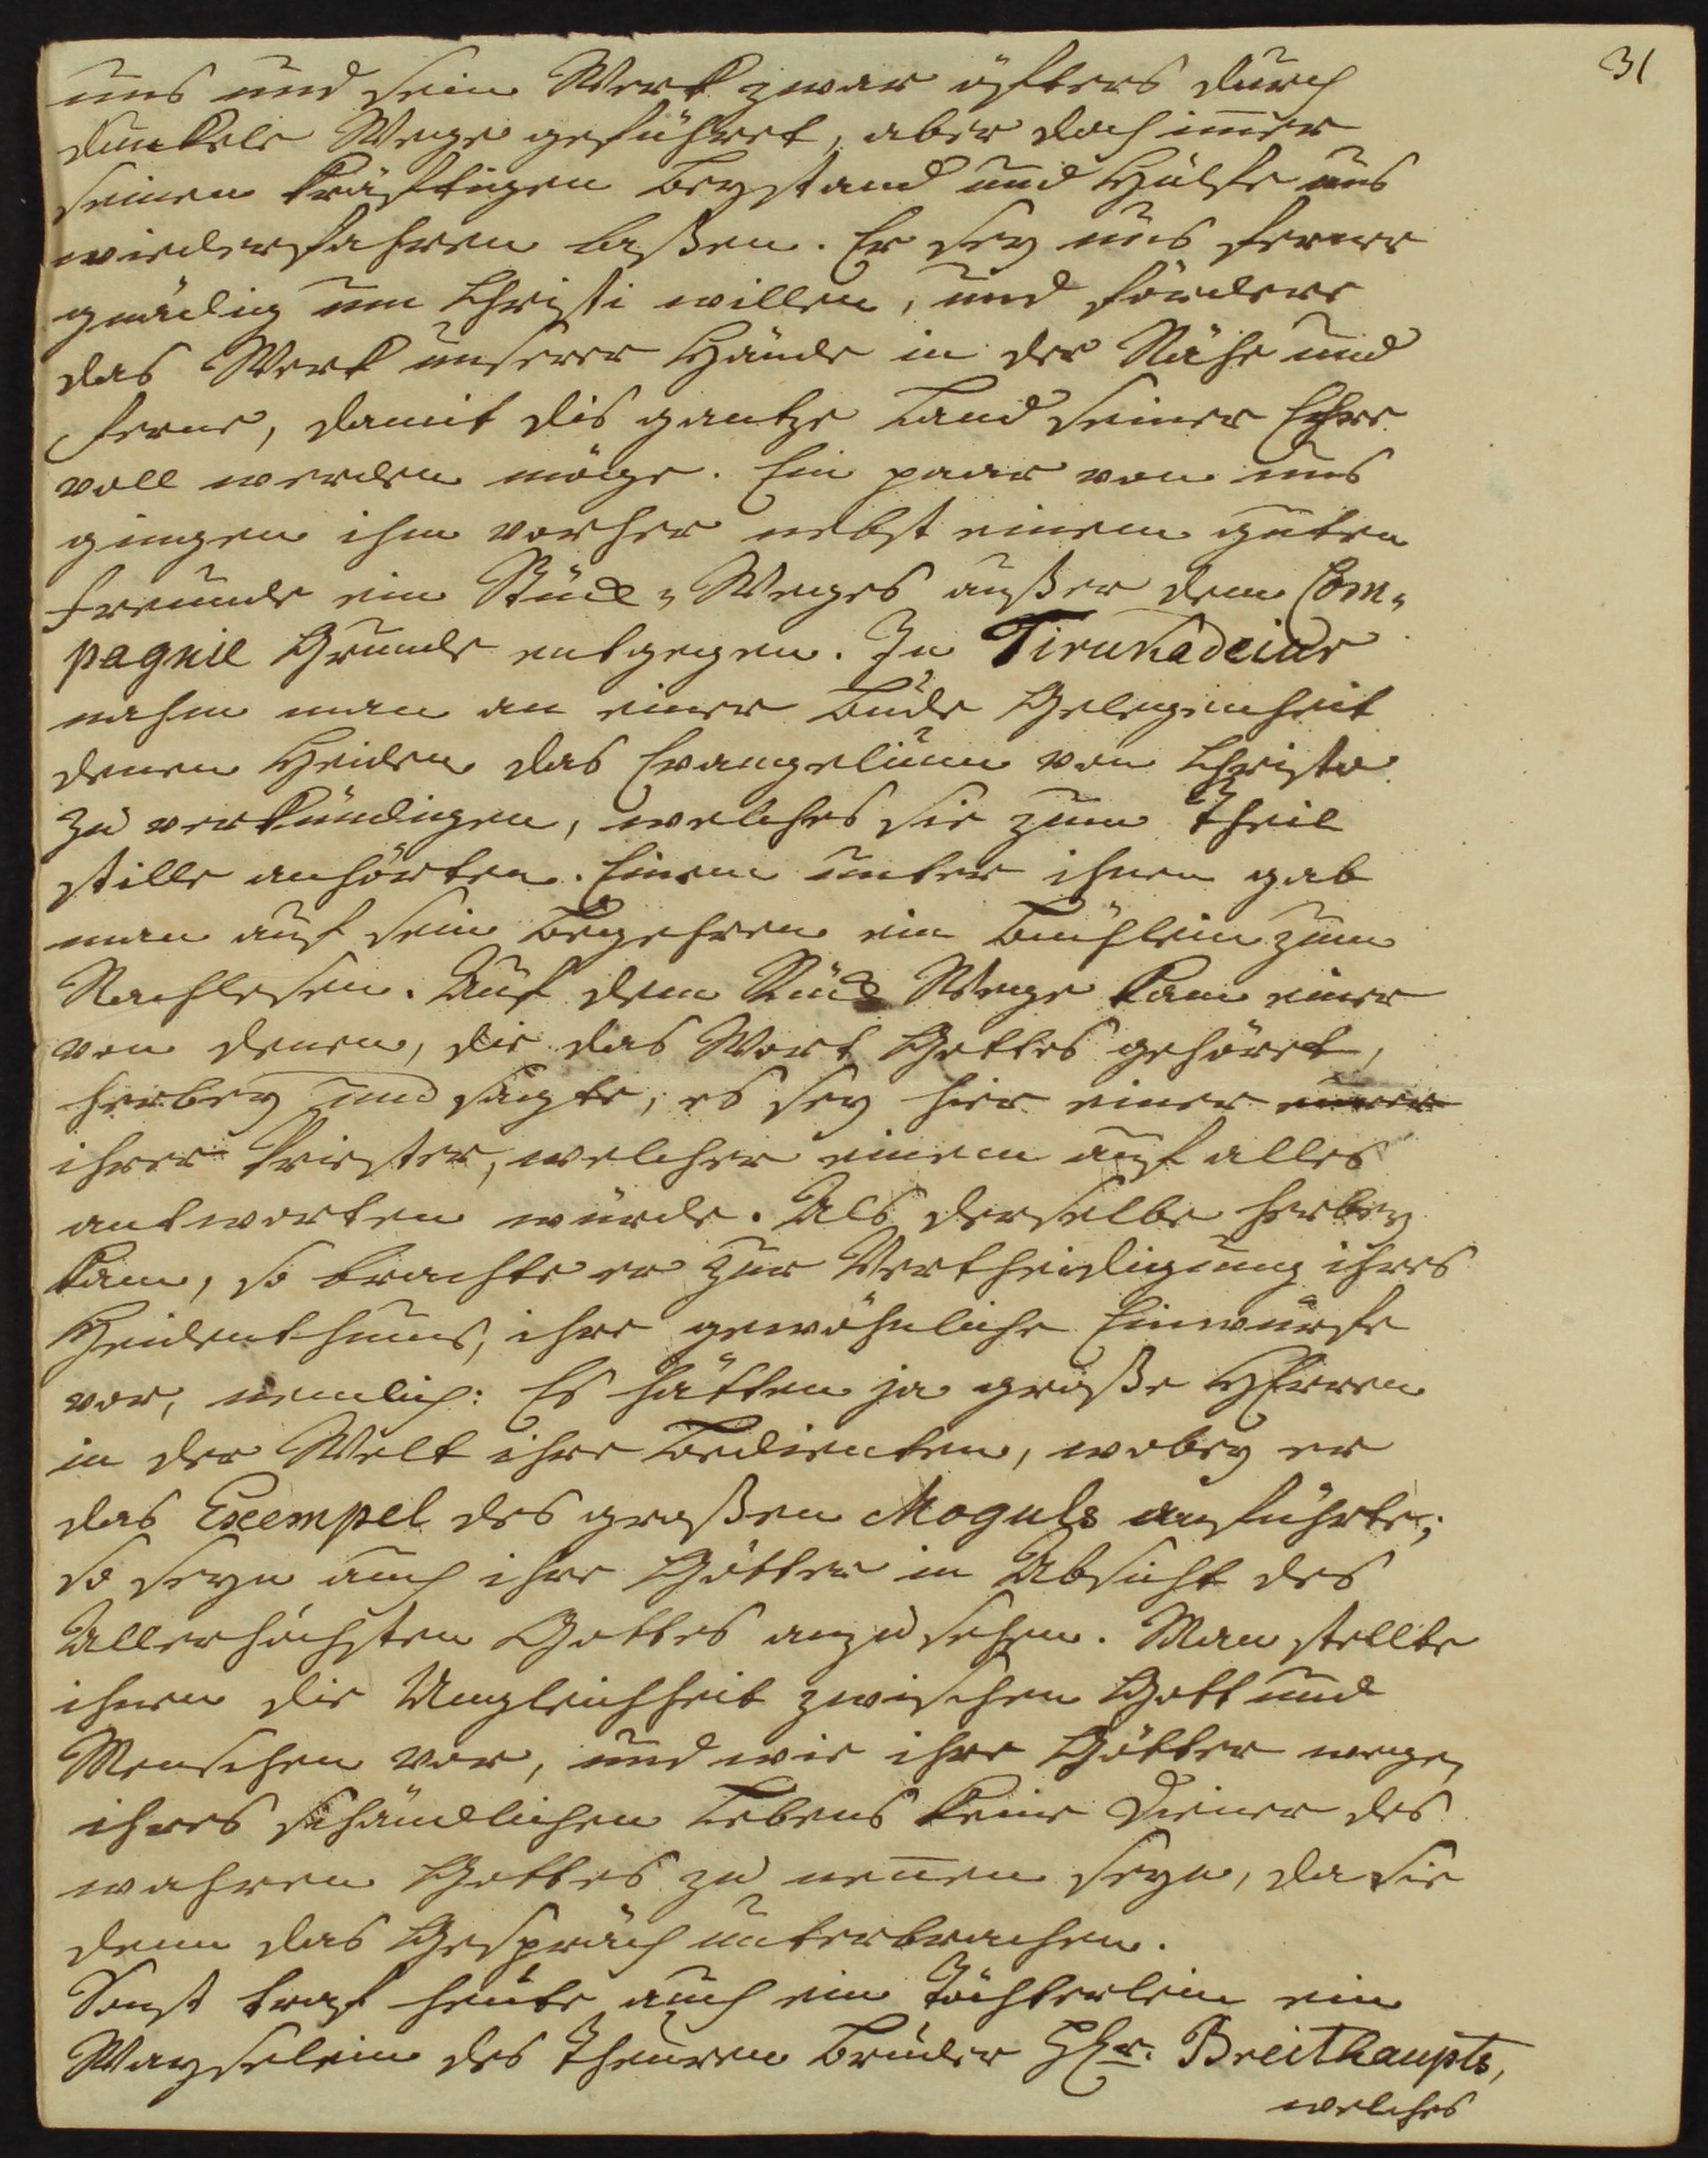 31
uns und sein Werk zwar öfters durch
dunkele Wege geführet, aber doch im̄er
seinen kräftigen Beystand und Hülfe uns
wiederfahren laßen. Er sey uns ferner
gnädig um Christi willen, und fördere
das Werk unserer Hände in der Nähe und
ferne, damit dis gantze Land seiner Ehre
voll werden möge. Ein paar von uns
gingen ihm vorher nebst einem guten
Freunde ein Stück-Weges außer dem Com-
pagnie Grunde entgegen. In Tirukadeiur
nahm man an einer Bude Gelegenheit
denen Heiden das Evangelium von Christo
zu verkündigen, welches sie zum Theil
stille anhörten. Einem unter ihnen gab
man auf sein Begehren ein Büchlein zum
Nachlesen. Auf dem Rück Wege kam einer
von denen, die das Wort Gottes gehöret,
herbey und sagte, es sey hier einer
ihrer Priester, welcher einem auf alles
antworten würde. Als derselbe herbey
kam, so brachte er zur Vertheidigung ihres
Heidenthums, ihre gewöhnliche Einwürfe
vor, nemlich: Es hätten ja große Herren
in der Welt ihre Bedienten, wobey er
das Exempel des großen Moguls anführte;
so seyn auch ihre Götter in Absicht des
Allerhöchsten Gottes anzusehen. Man stellte
ihnen die Ungleichheit zwischen Gott und
Menschen vor, und wie ihre Götter wegen
ihres schändlichen Lebens keine Diener des
wahren Gottes zu nen̄en seyn, da sie
denn das Gespräch unterbrachen.
Sonst traf heute auch ein Töchterlein ein
Wayselein des Theuren Bruder HEr. Breithaupts,
welches